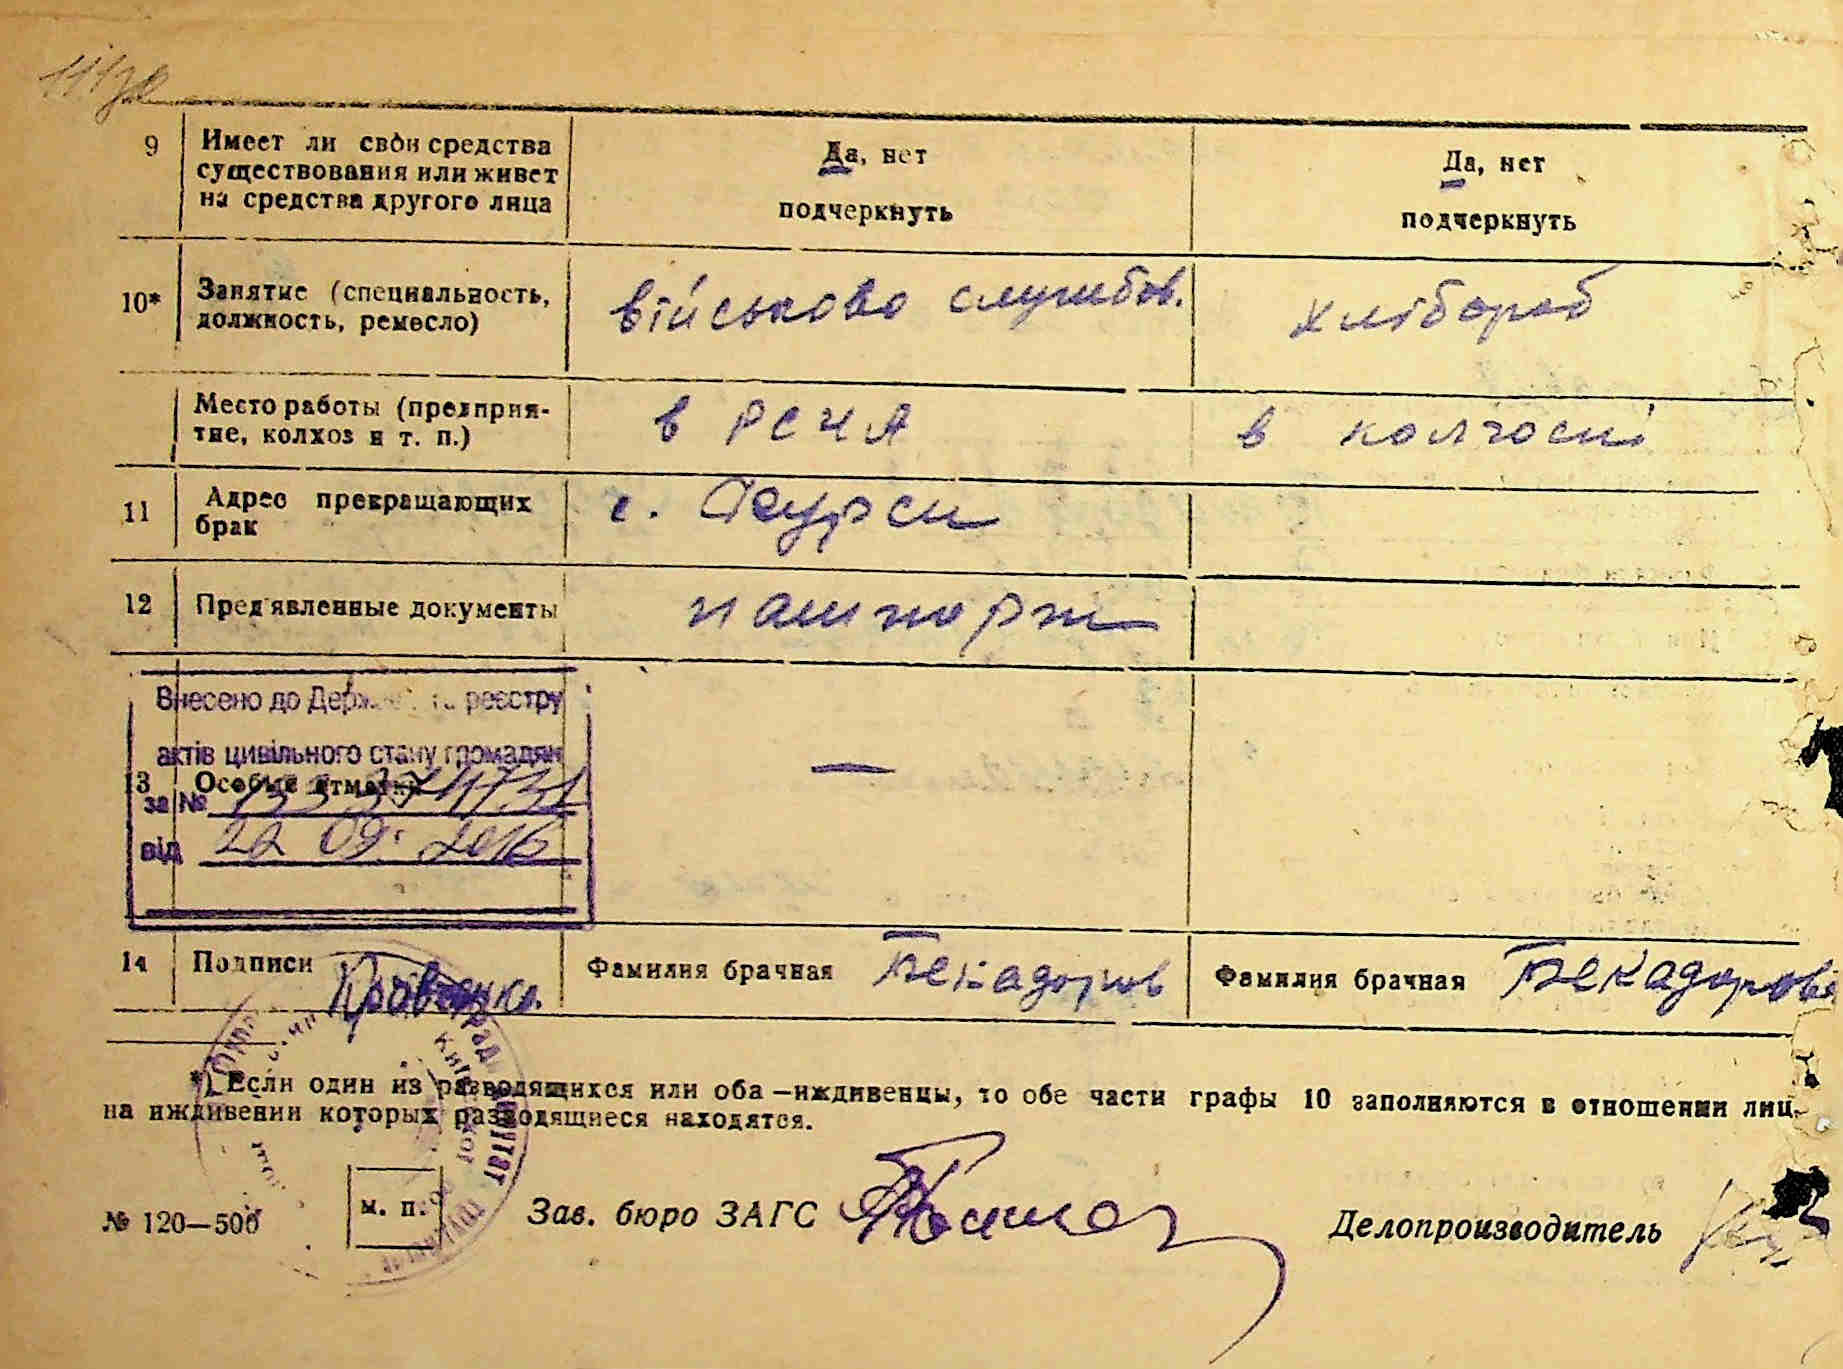 9 Имеет ли свои средства существования или живет на средства другого лица
Да, нет
подчеркнуть
Да, нет
подчеркнуть
10* Занятие (специальность, должность, ремесло)
військово службов.
хлібороб
Место работы (предприятие, колхоз и т. п.)
в РСЧА
в колгоспі
11 Адрес прекращающих брак
с.
12 Пред'явленные документы
пашпорт
Внесено до Державного реєстру
актів цивільного стану громадян
13 Особые отметки
за №
від 22 09. 2016
—
14 Подписи
Фамилия брачная Бекадоров
Фамилия брачная Бекадорова
*) Если один из разводящихся или оба —иждивенцы, то обе части графы 10 заполняются в отношении лиц,
на иждивении которых разводящиеся находятся.
№ 120—500
м. п.
Зав. бюро ЗАГС
Делопроизводитель